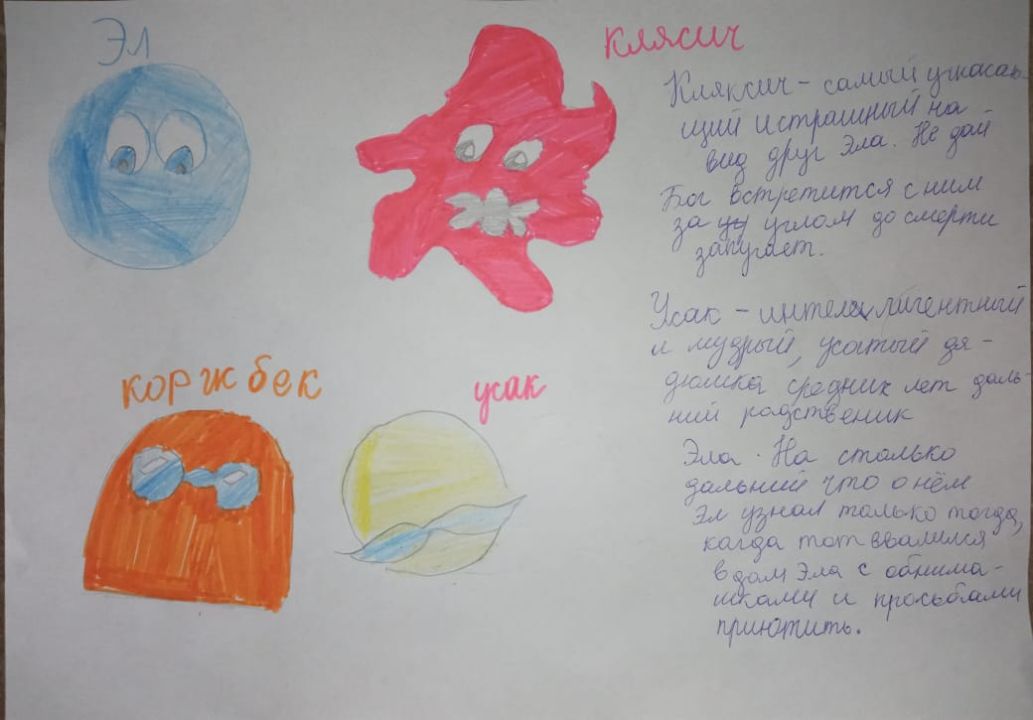 Эл
клясич
Кляксич - самый ужасаю
щий и страшный на
вид друг Эла. Не дай
Бог встретится с ним
за углом до смерти
запугает.
Усак - интеллигентный
и мудрый, усатый дя-
дюшка средних лет даль-
ний радственик
Эла. На столько
дальний что о нём
Эл узнал только тогда,
кагда тот ввалился
в дом Эла с обнима-
шками и прозьбами
приютить.
коржбек
усак